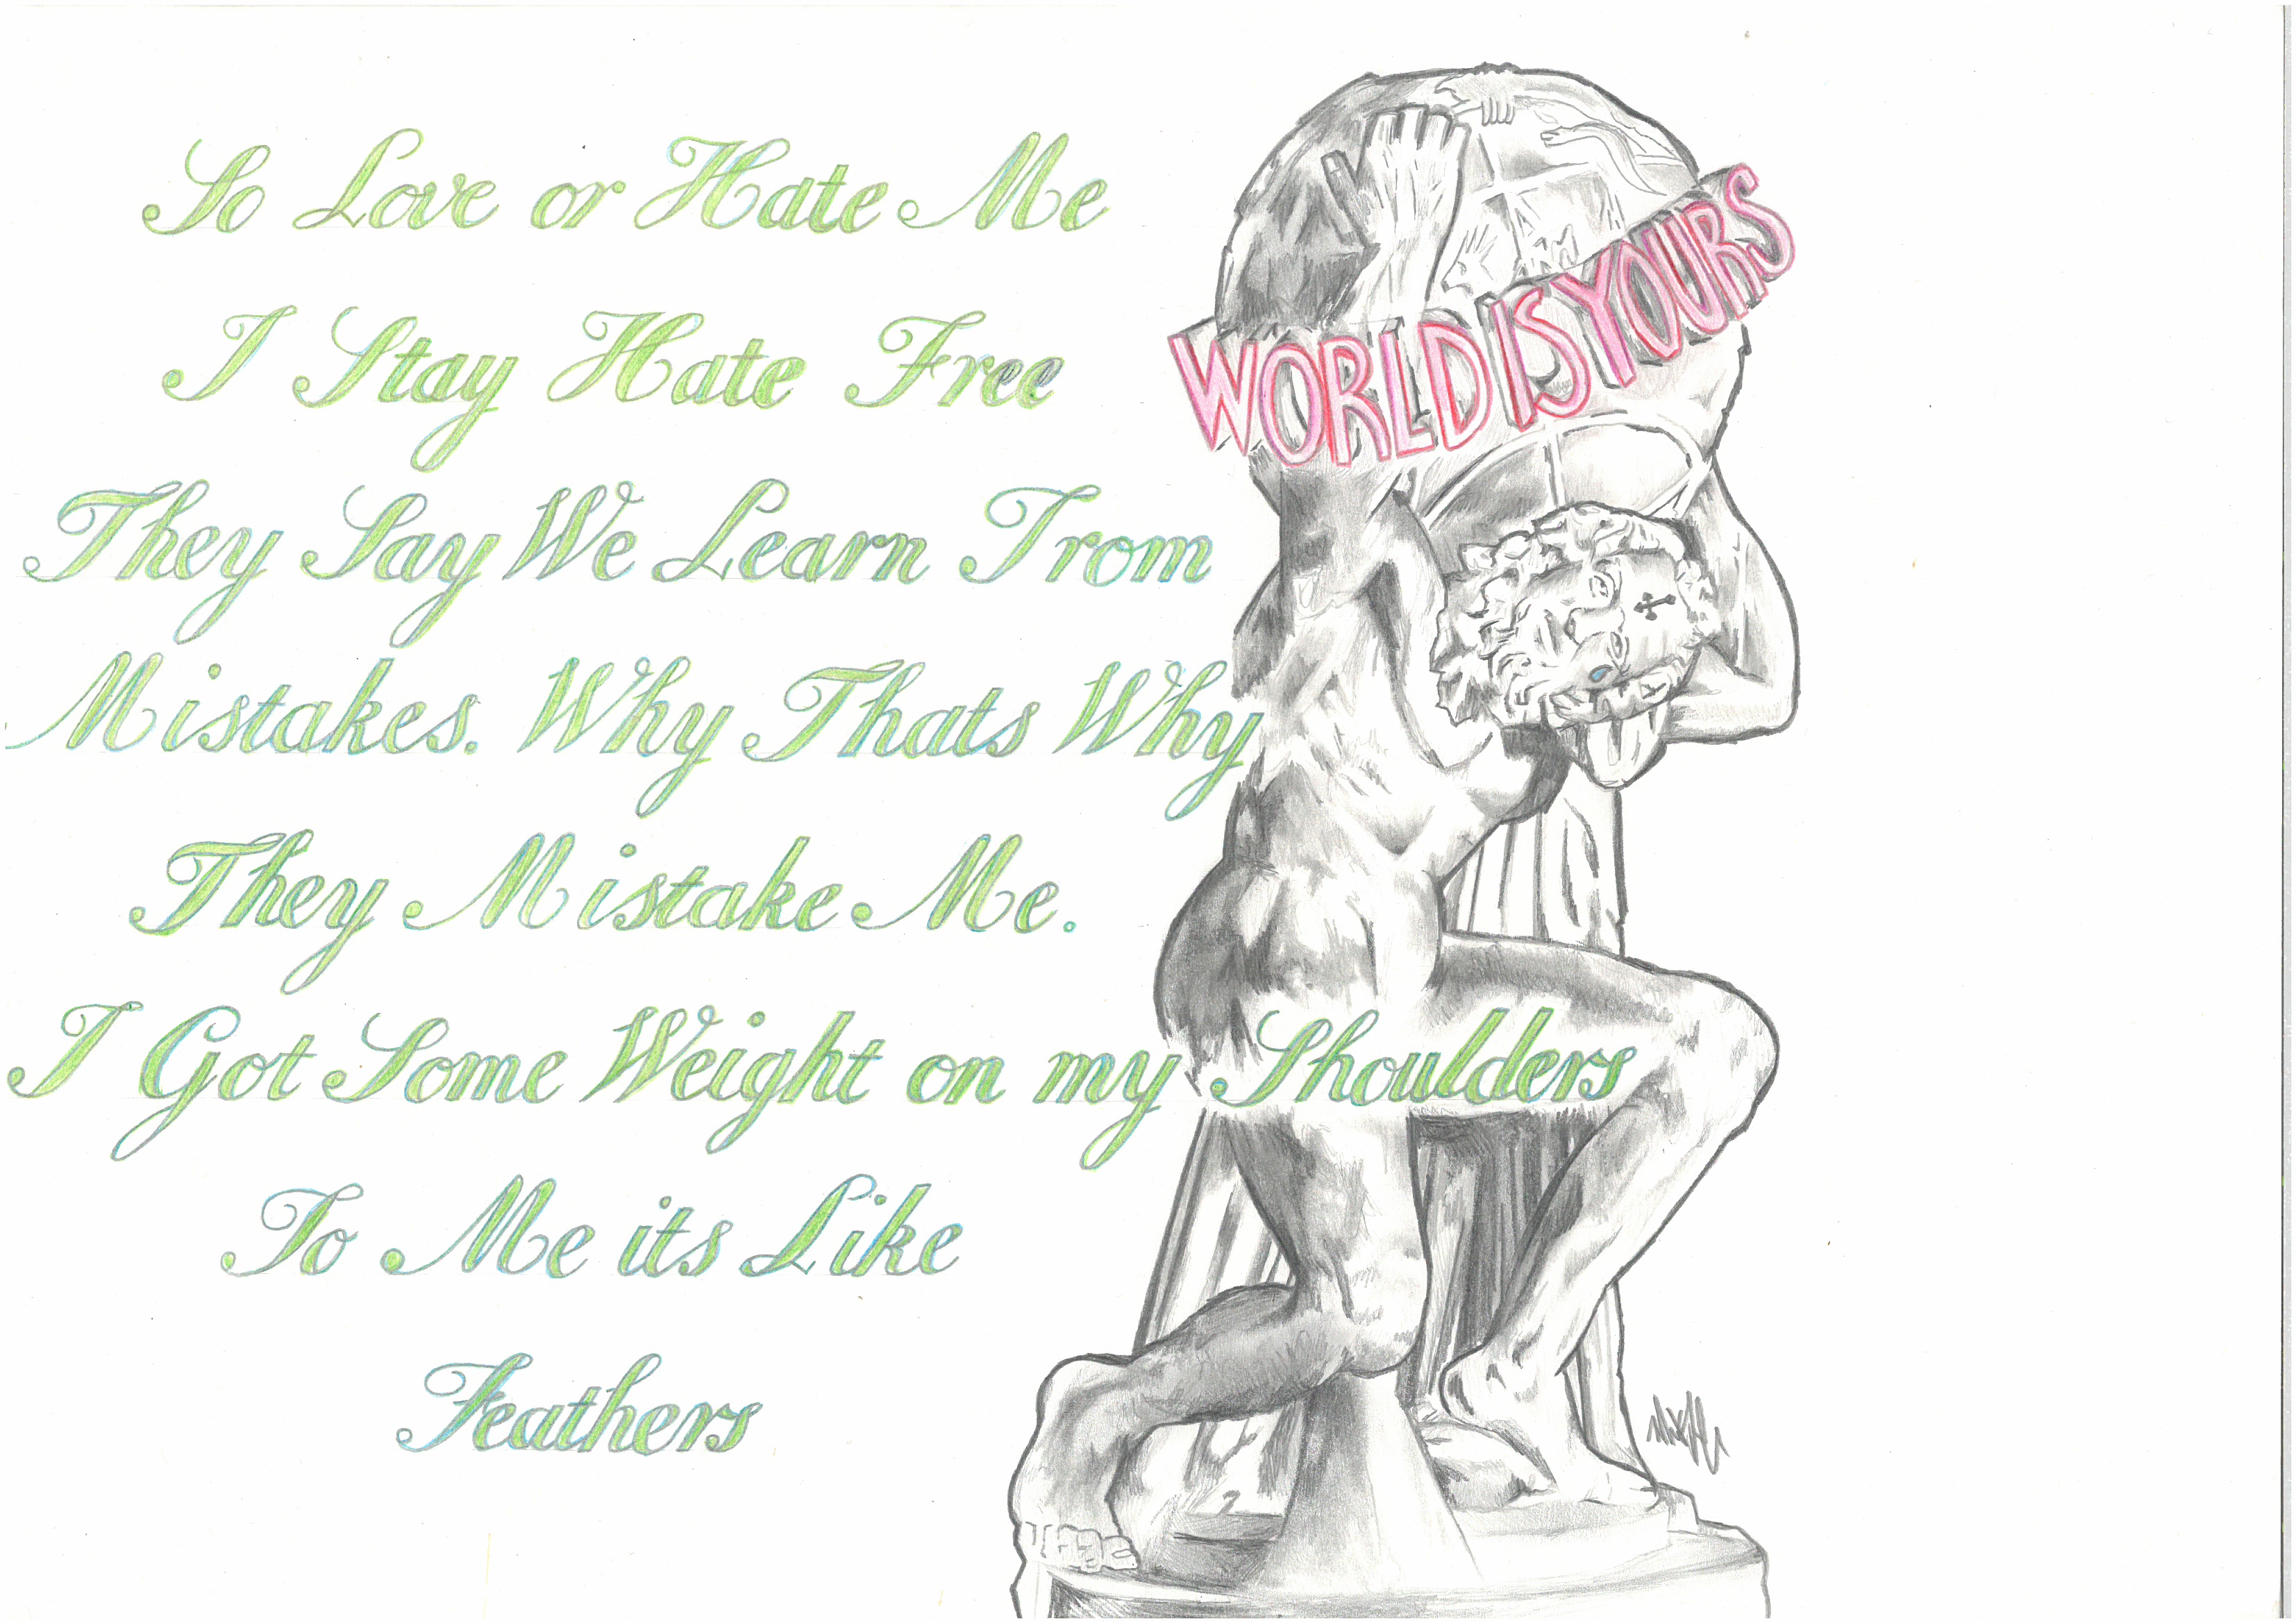 So Love or Hate Me
I Stay Hate Free
They Say We Learn From
Mistakes. Why Thats Why
They Mistake Me.
I Got Some Weight on my Shoulders
To Me its Like
Feathers
WORLD IS YOURS